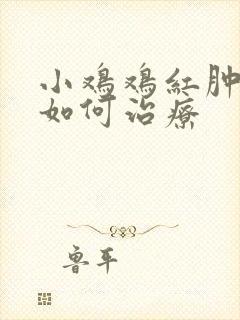 小鸡鸡红肿
如何治疗
鲁平